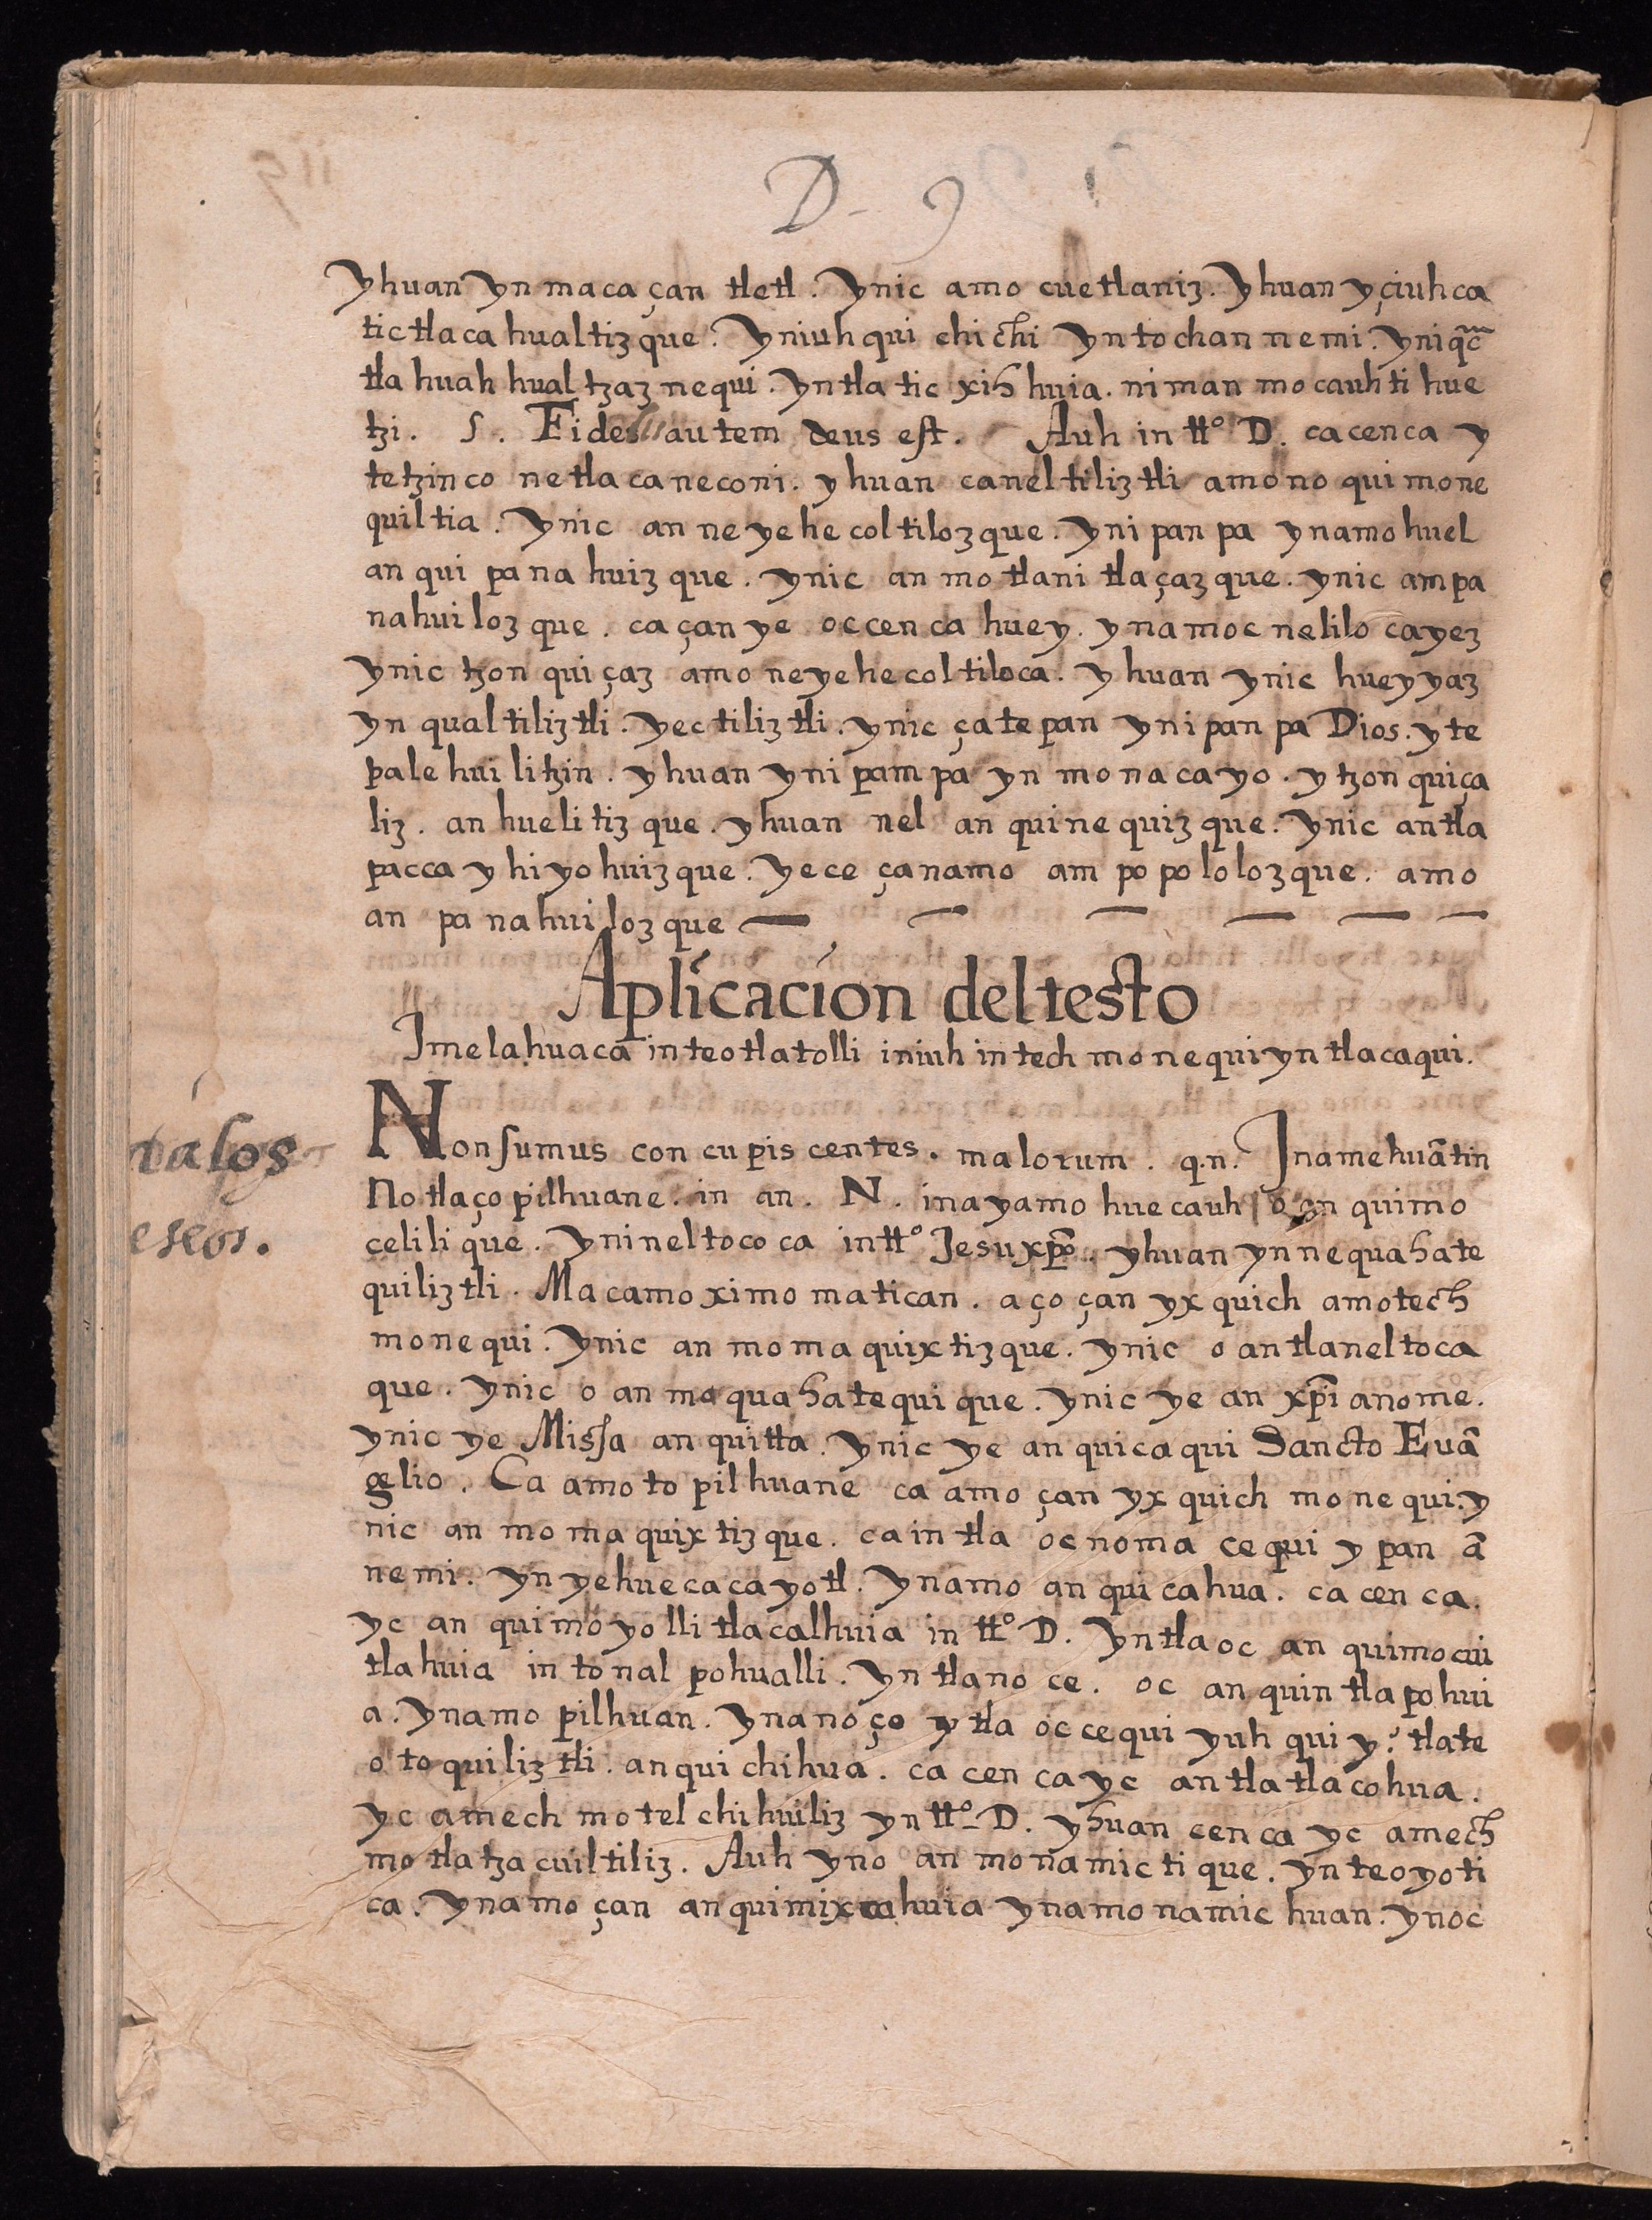 D - 9
yhuan yn maca çan tletl. ynic amo cuetlaniz. yhuan yçiuhca
tictlaca hualtizque. yniuhqui chichi yn tochan nemi. yniqc̃
tla huah hual tzaz nequi. yn tla tic xih huia. niman mo cauhti hue
tzi. S. Fides autem deus est. Auh in tt.º D. ca cenca y
tetzinco netlacaneconi. yhuan caneltiliztli amo no quimone
quiltia. ynic an neyehecoltilozque. ynipanpa ynamo huel
an qui panahuizque. ynic an motlani tlaçazque. ynic ampa
nahuilozque. ca çan ye occenca huey. ynamocnelilo cayez
ynic tzonquiçaz amo neyehecoltiloca. yhuan ynic hueyyaz
yn qualtiliztli. yectiliztli. ynic çatepan ynipanpa Dios. yte
palehuilitzin. yhuan ynipampa yn monacayo. ytzonquiça
liz. anhuelitizque. yhuan nel an quinequizque. ynic antla
pacca yhiyohuizque. yece çanamo am popololozque. amo
an panahuilozque — — — — — —
Aplicacion del testo
Imelahuaca in teotlatolli iniuh in tech monequi yn tlacaqui.
Non sumus concupiscentes. malorum. q.n. Inamehuãtin
Notlaçopilhuane. in an. N. inayamo huecauh o an quimo
celilique. ynineltococa in tt.º Jesuxp̃o. yhuan yn nequahate
quiliztli. Macamo ximomatican. aço çan yxquich amotech
monequi. ynic an momaquixtizque. ynic o antlaneltoca
que. ynic o an moquahatequique. ynic ye an xp̃ianome.
ynic ye Missa anquitta. ynic ye an quicaqui Sancto Euã
gelio. Ca amo topilhuane ca amo çan yxquich monequi. y
nic an momaquixtizque. ca in tla oc noma cequi ypan ã
nemi. yn yehuecacayotl. ynamo an quicahua. ca cenca.
yc an quimoyollitlacalhuia in tt.º D. yn tla oc an quimocui
tlahuia in tonalpohualli. yn tlano ce. oc an quin tlapohui
a. ynamo pilhuan. ynanoço ytla occequi yuhqui y. tlate
otoquiliztli. anquichihua. ca cenca yc antlatlacohua.
yc amechmotelchihuiliz yn tt.º D. yhuan cenca yc amech
motlatzacuiltiliz. Auh yno an monamictique. yn teoyoti
ca. ynamo çan anquimixcahuia ynamonamic huan. ynoc
alos
eseos.